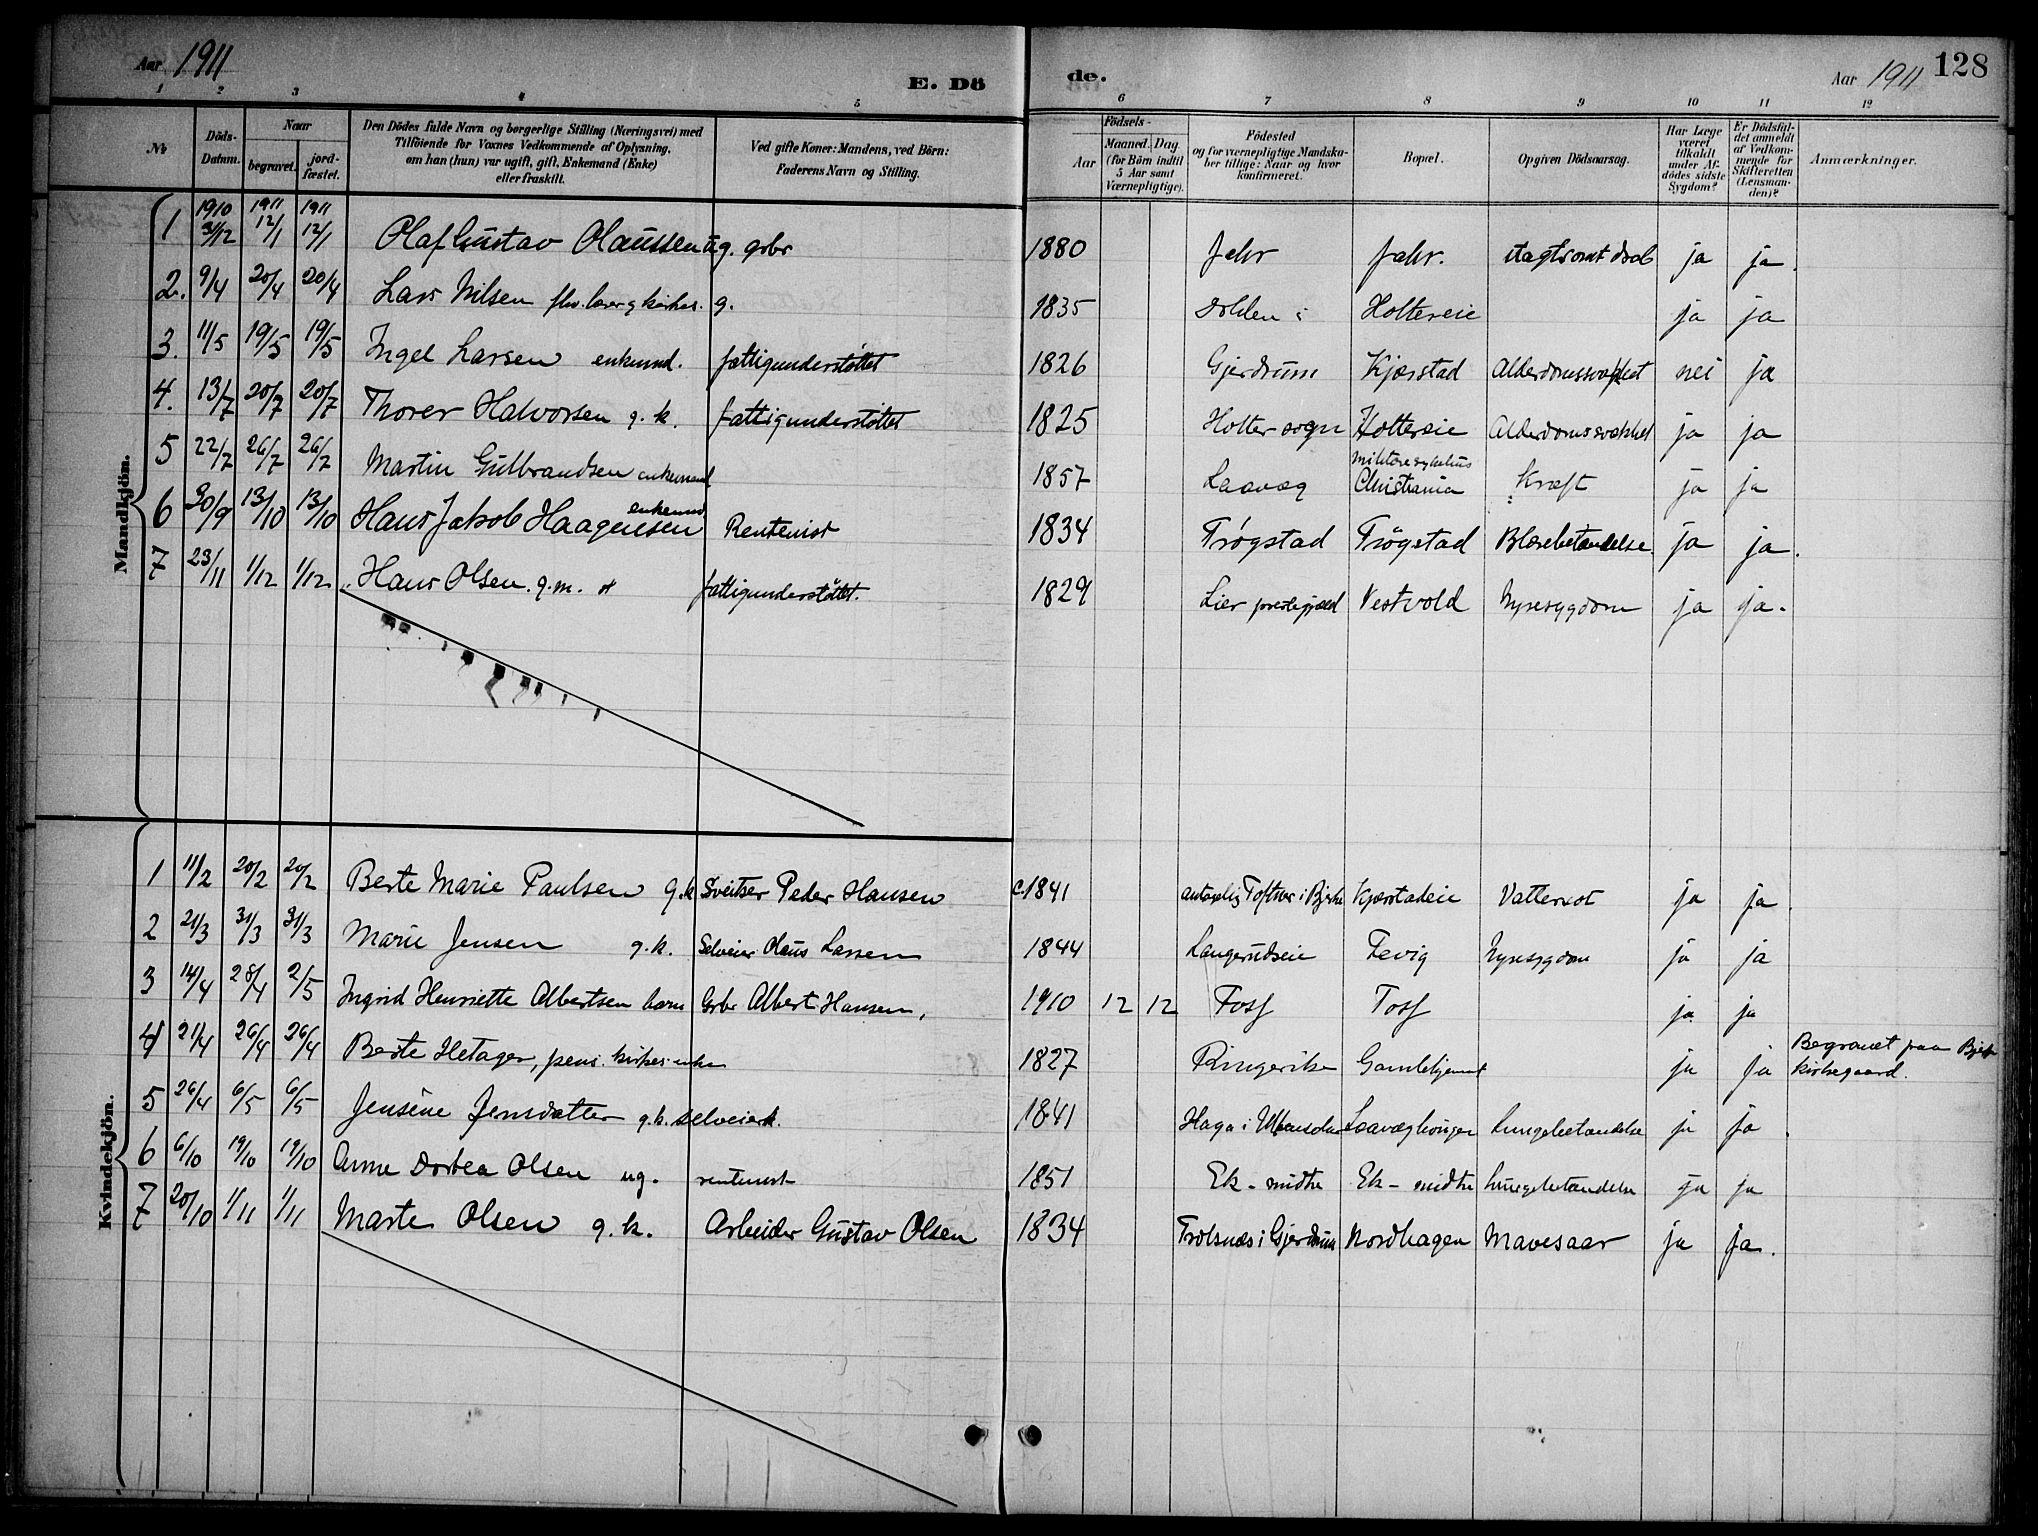 Aar 1911 E. Dö de. Aar 1911 128
1 2 3 4 5 6 7 8 9 10 11 12
No Döds-Datum. Naar begravet. jordfæstet. Den Dödes fulde Navn og borgerlige Stilling (Næringsvei) med Tilföiende for Voxnes Vedkommende af Oplysning, om han (hun) var ugift, gift, Enkemand (Enke) eller fraskilt. Ved gifte Koner: Mandens, ved Börn: Faderens Navn og Stilling. Födsels- Aar Maaned. Dag (for Börn indtil 5 Aar samt Værnepligtige). Födested og for værnepligtige Mandskaber tillige: Naar og hvor konfirmeret. Bopæl. Opgiven Dödsaarsag. Har Læge været tilkaldt under Afdödes sidste Sygdom? Er Dödsfaldet anmeldt af Vedkommende for Skifteretten (Lensmanden)? Anmærkninger.
Mandkjön.
1 1910 31/12 1911 12/1 1911 12/1 Olaf Gustav Olaussen ug. grbr 1880 Jehr Jehr. drab ja ja.
2. 9/4 20/4 20/4 Lars Nilsen g. 1835 Holtereie ja ja
3. 11/5 19/5 19/5 Ingel Larsen enkemd. fattigunderstøttet 1826 Gjerdrum Kjærstad Alderdomssvækket nei ja
4. 13/7 20/7 20/7 Thorer Halvorsen g. k. fattigunderstøttet 1825 Holter sogn Holtereie Alderdomssvækket ja ja
5 22/7 26/7 26/7 Martin Gulbrandsen enkemand 1857 Laavæg militære sykehus Christiania Kræft ja ja
6 30/9 13/10 13/10 Hans Jakob Haagensen enkemd Rentenist 1834 Trøgstad Trøgstad Blærebetændelse ja ja.
7 23/11 1/12 1/12 Hans Olsen. g.m. fattigunderstøttet. 1829 Lier prestegjæld Vestvold Nyresygdom ja ja.
Kvindekjön.
1 11/2 20/2 20/2 Berte Marie Paulsen g.k Sveitser Peder Hansen c1841 antagelig Toftner i Bjerke Kjærstadeie Vattersot ja ja.
2 21/3 31/3 31/3 Marie Jensen g.k. Selveier Olaus Larsen 1844 Langerudseie Fevig Nyresygdom ja ja
3 14/4 28/4 2/5 Ingrid Henriette Albertsen barn Grbr Albert Hansen, 1910 12 12 Fosf Fosf ja ja
4 21/4 26/4 26/4 Berte Hetager, pens. kirkes. enke 1827 Ringerike Gamlehjemmet ja ja Begravet paa Bjerke kirkegaard.
5 26/4 6/5 6/5 Jensine Jensdatter g.k. selveierk. 1841 Haga i Ullensaker Laavæghouger Lungebetændelse ja ja.
6 6/10 19/10 19/10 Anne Dortea Olsen ug. rentenist 1851 Ek - midtre Ek - midtre Lungebetændelse ja ja
7 20/10 1/11 1/11 Marte Olsen g. k. Arbeider Gustav Olsen 1834 Trolsnæs i Gjerdrum Nordhagen Mavesaar ja ja.